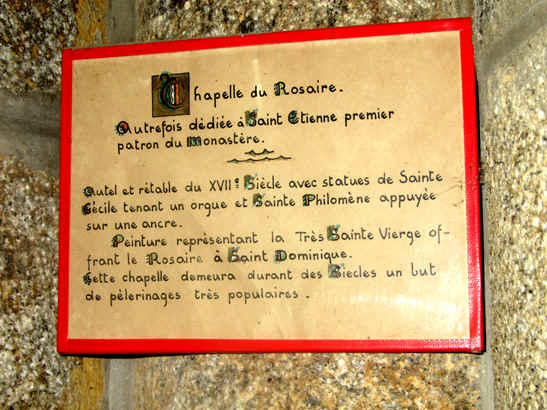 Chapelle du Rosaire.
Autrefois dédiée à Saint Etienne premier
patron du Monastère.
Autel et rétable du XVIIe Siècle avec statues de Sainte
Cécile tenant un orgue et Sainte Philomène appuyée
sur une ancre.
Peinture représentant la Très Sainte Vierge of-
frant le Rosaire à Saint Dominique.
Cette chapelle demeura durant des Siecles un but
de pèlerinages très populaires.